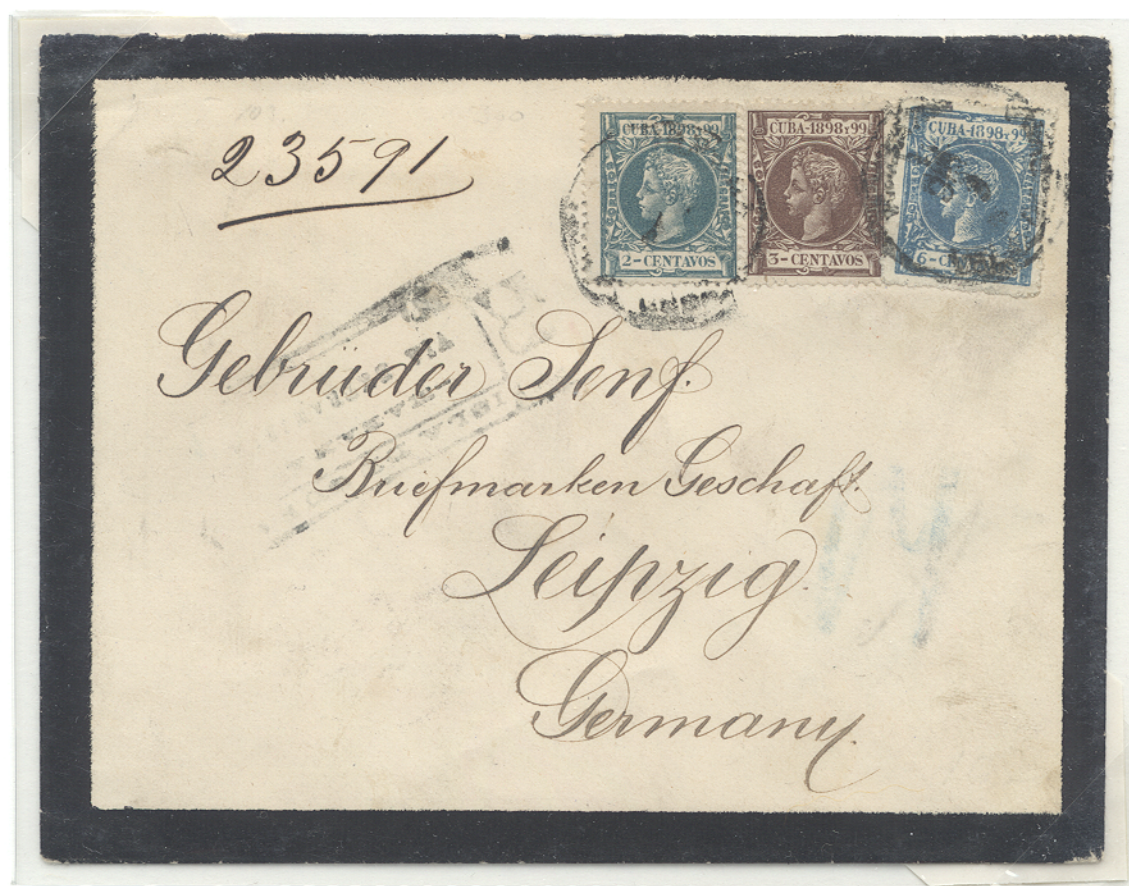 23591
CUBA-1898 Y 99
2-CENTAVOS
CUBA-1898 Y 99
3-CENTAVOS
CUBA-1898 Y 99
Gebrüder Senf.
Briefmarken Geschaft.
Leipzig.
Germany.